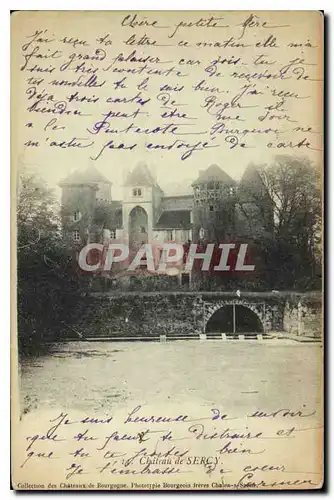 Chère petite Mère
J'ai reçu ta lettre ce matin elle m'a
fait grand plaisir car vois-tu je
suis très contente de recevoir de
tes nouvelles tu le sais bien. J'ai reçu
déjà trois cartes de Roger il
viendra peut être me voir
a la Pentecôte. Pourquoi ne
m'as tu pas envoyé de carte
CAPHIL
Je suis heureuse de savoir
que tu peux te distraire et
que tu te portes bien
Je t'embrasse de coeur
Germen
Château de SERCY.
Collection des Châteaux de Bourgogne. Phototypie Bourgeois frères Chalon-s-Saône.